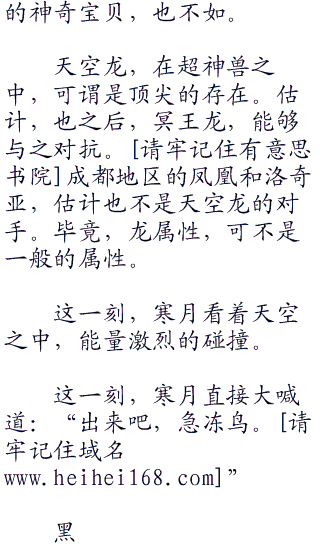 的神奇宝贝，也不如。
天空龙，在超神兽之
中，可谓是顶尖的存在。估
计，也之后，冥王龙，能够
与之对抗。[请牢记住有意思
书院]成都地区的凤凰和洛奇
亚，估计也不是天空龙的对
手。毕竟，龙属性，可不是
一般的属性。
这一刻，寒月看着天空
之中，能量激烈的碰撞。
这一刻，寒月直接大喊
道：“出来吧，急冻鸟。[请
牢记住域名
www.heihei168.com]”
黑